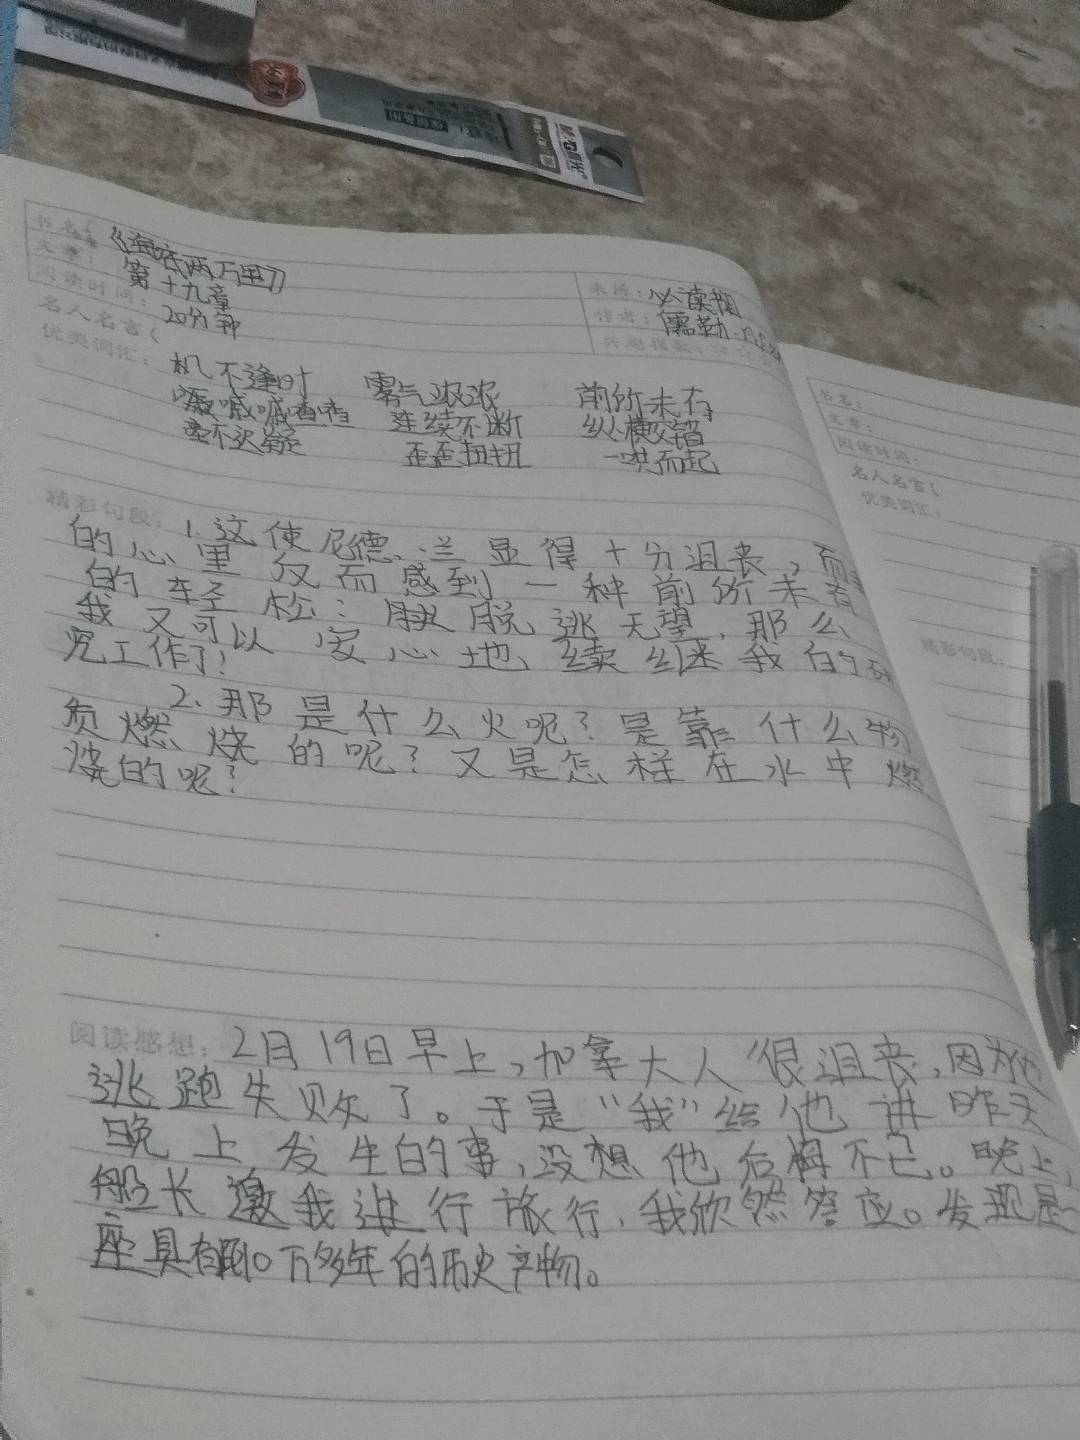 书名：《海底两万里》
来源：必读
文章：第十九章
作者：儒勒·凡
阅读时间：20分钟
兴趣指数：
名人名言（
优美词汇：机不逢时 雾气浓浓 前所未有
嘁嘁喳喳 连续不断 纵横交错
不迟疑 歪歪扭扭 一哄而起
精彩句段：1.这使尼德·兰显得十分沮丧，而
的心里反而感到一种前所未有
的轻松：脱逃无望，那么
我又可以安心地继续我的研
究工作了！
2.那是什么火呢？是靠什么物
质燃烧的呢？又是怎样在水中燃
烧的呢？
阅读感想：2月19日早上，加拿大人很沮丧，因为他
逃跑失败了。于是“我”给他讲昨天
晚上发生的事，没想他后悔不已。晚上，
船长邀我进行旅行，我欣然答应。发现是
座具有 万多年的历史产物。
书名：
文章：
阅读时间：
名人名言（
优美词汇：
精彩句段：